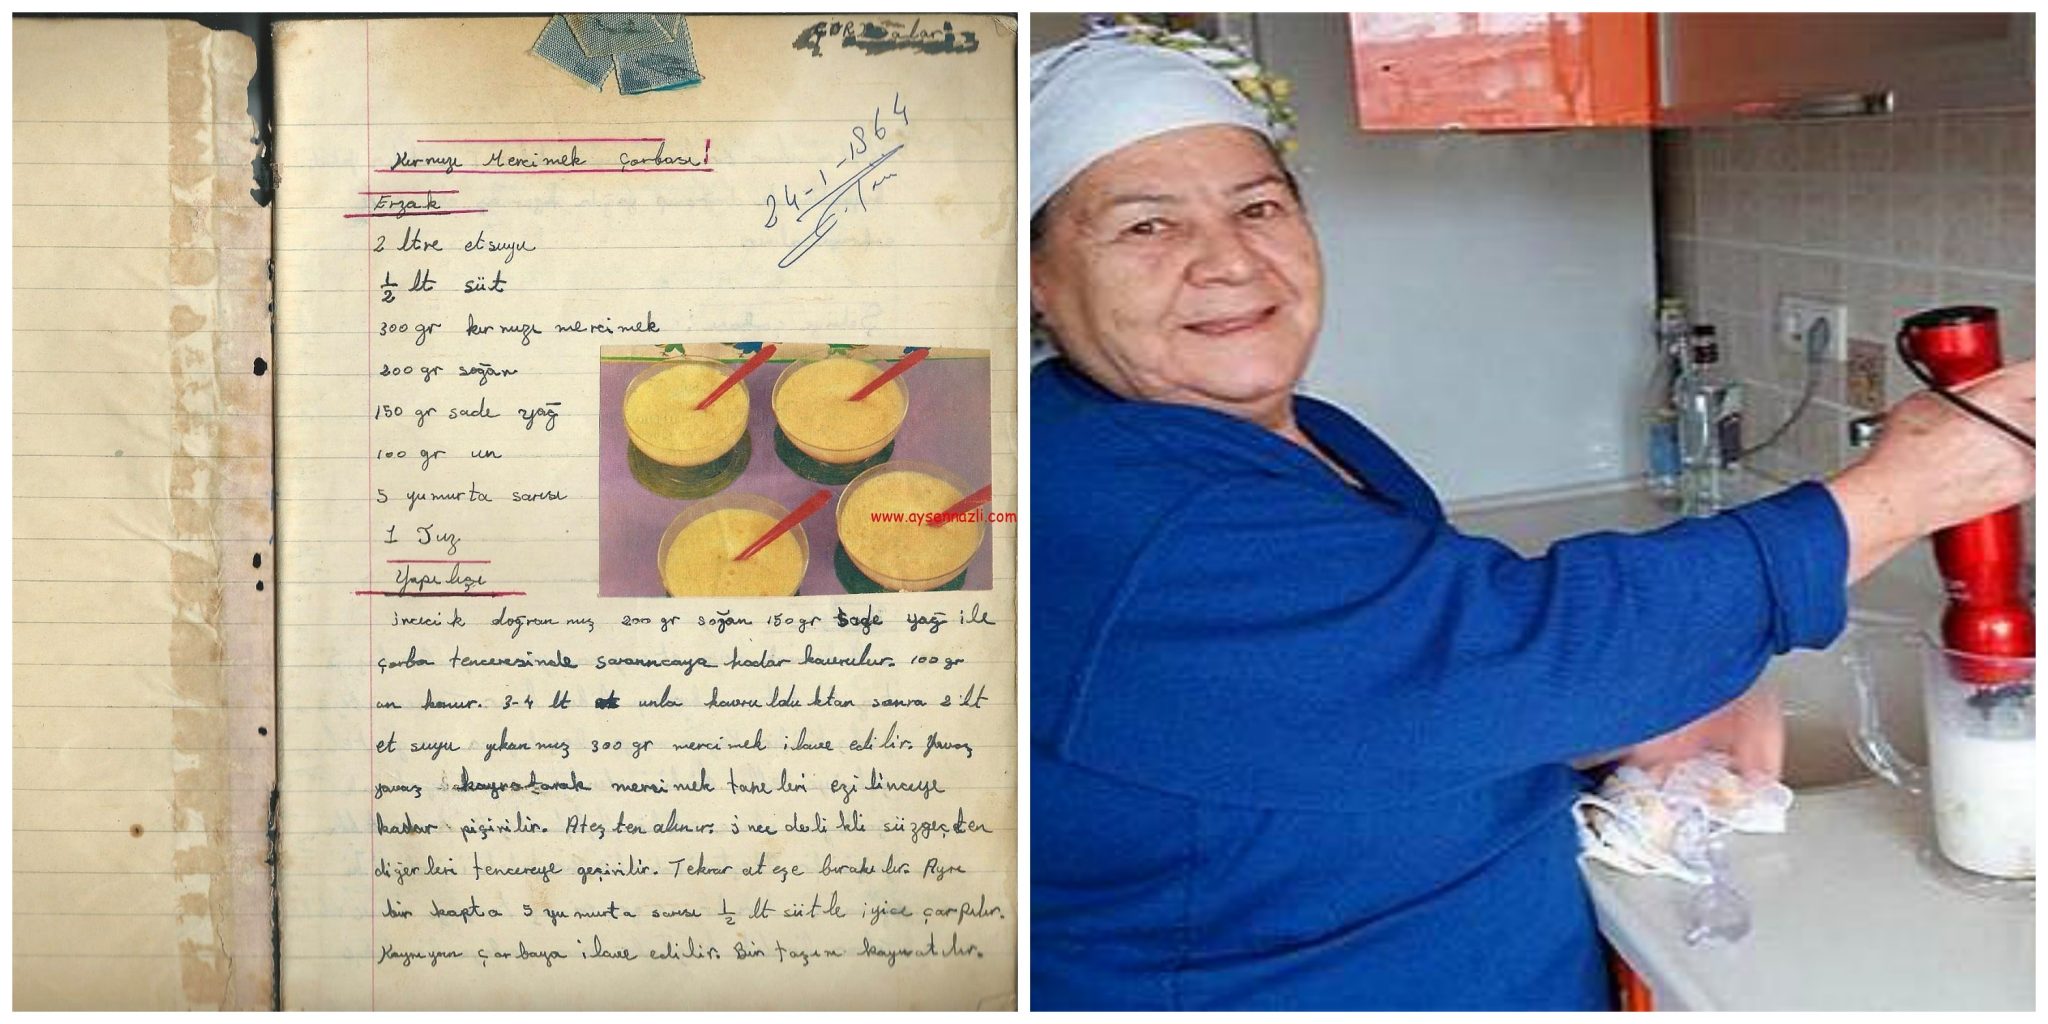 ÇORBALAR
24-1-1964
Kırmızı Mercimek Çorbası!
Erzak
2 ltre etsuyu
1/2 lt süt
300 gr kırmızı mercimek
200 gr soğan
150 gr sade yağ
100 gr un
5 yumurta sarısı
1 Tuz
www.aysennazli.com
Yapılışı
incecik doğranmış 200 gr soğan 150 gr sade yağ ile
çorba tenceresinde sararıncaya kadar kavrulur. 100 gr
un konur. 3-4 lt unla kavrulduktan sonra 2 lt
et suyu yıkanmış 300 gr mercimek ilave edilir. Yavaş
yavaş kaynatarak mercimek taneleri ezilinceye
kadar pişirilir. Ateşten alınır. ince delikli süzgeçten
diğerleri tencereye geçirilir. Tekrar ateşe bırakılır. Ayrı
bir kapta 5 yumurta sarısı 1/2 lt sütle iyice çarpılır.
Kaynıyan çorbaya ilave edilir. Bir taşım kaynatılır.